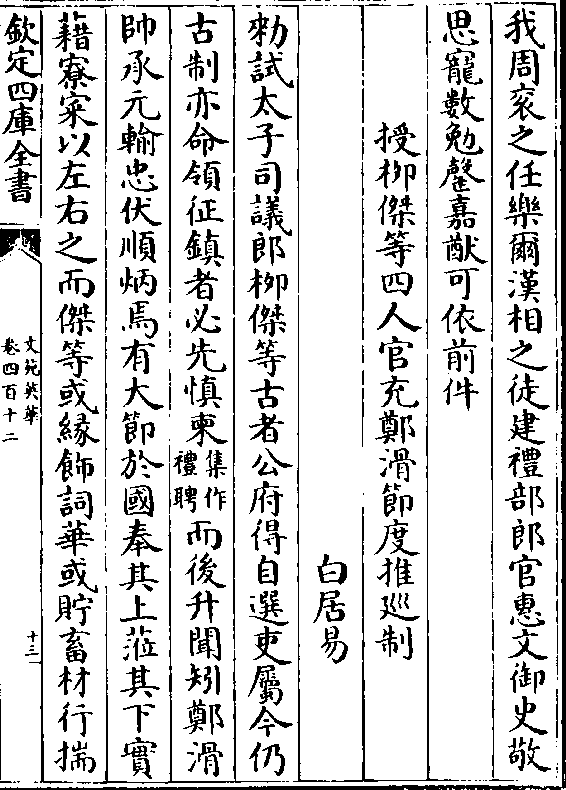 我周衮之任樂爾漢相之徒建禮部郎官惠文御史敬
思寵數勉罄嘉猷可依前件
授柳傑等四人官充鄭滑節度推巡制
白居易
勑試太子司議郎柳傑等古者公府得自選吏屬今仍
古制亦命領征鎮者必先慎柬集作禮聘而後升聞矧鄭滑
帥承元輸忠伏順炳焉有大節於國奉其上蒞其下實
藉寮寀以左右之而傑等或緣飾詞華或貯畜材行揣
欽定四庫全書
文苑英華
卷四百十二
十三